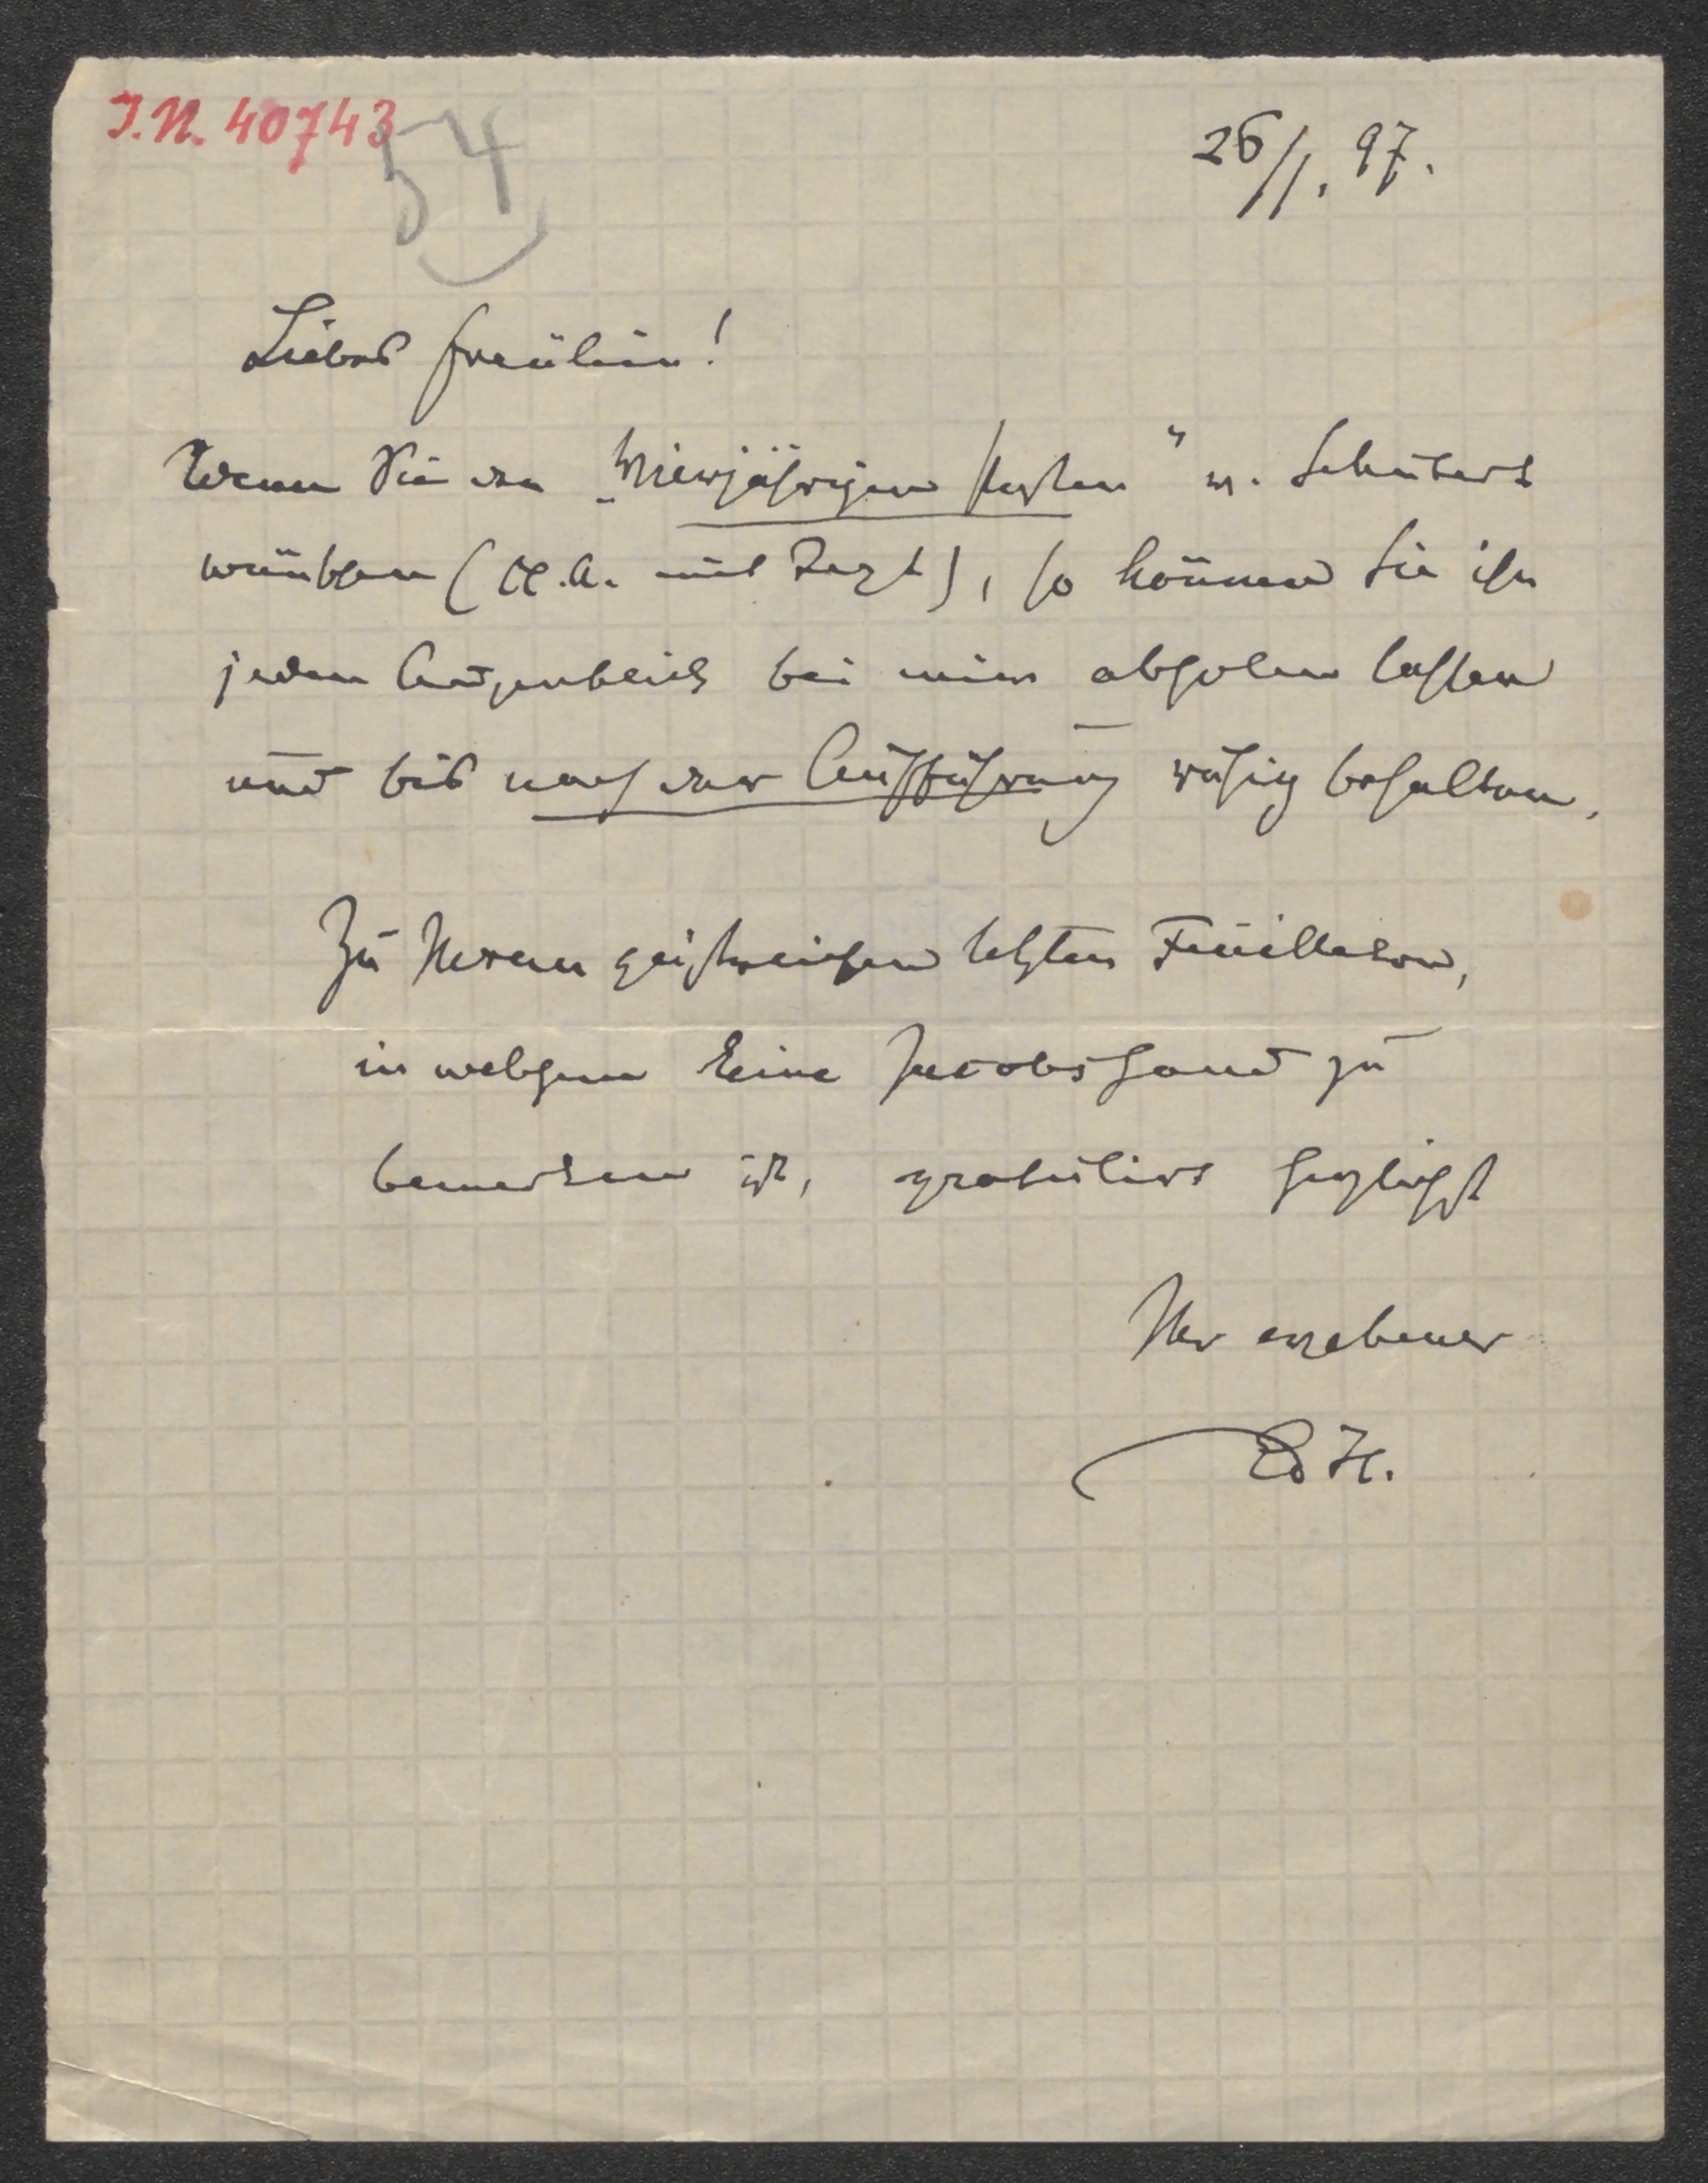 I.N. 40743
54
26/1. 97.
Liebes Fräulein!
Wenn Sie den „Vierjährigen Posten“ v. Schubert
wünschen (Cl.A. mit Text), so können Sie ihn
jeden Augenblick bei mir abholen lassen
und bis nach der Aufführung ruhig behalten.
Zu Ihrem geistreichen letzten Feuilleton,
in welchem keine Jacobshand zu
bemerken ist, gratulirt herzlichst
Ihr ergebener
Ed H.